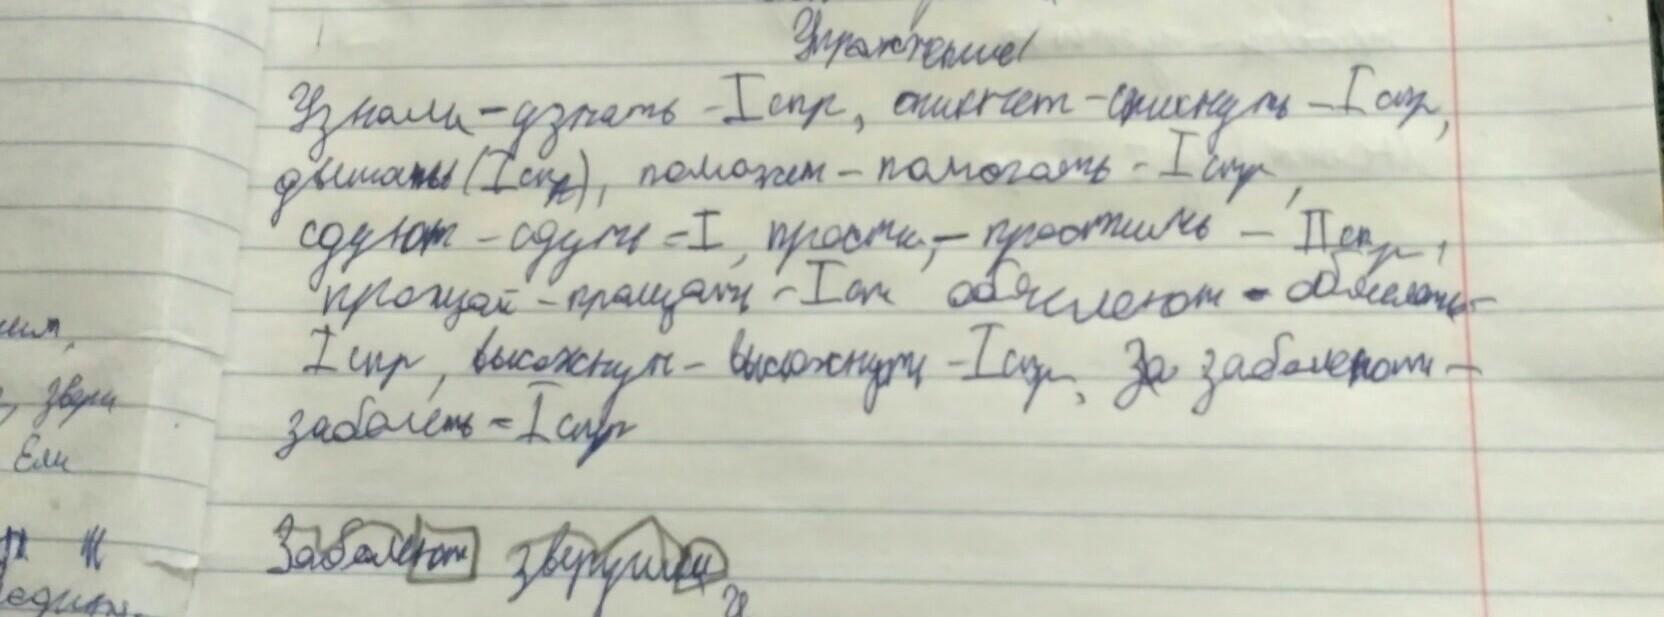 Упражнение
Узнали - узнать - I спр, сникнет - сникнуть - I спр,
дышать (I спр), поможет - помогать - I спр,
сдуют - сдуть - I, прости, - простить - II спр,
прощай - прощать - I сп объясняют - объяснять -
I спр, высохнут - высохнуть - I спр, За заболеют -
заболеть - I спр
Заболеют зверушки
им,
, звери
Ели
н
един